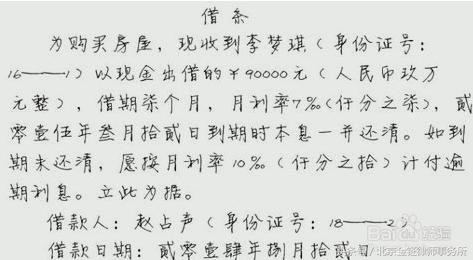 借条
为购买房屋，现收到李梦琪（身份证号：
16——1）以现金出借的￥90000元（人民币玖万
元整），借期柒个月，月利率7‰（仟分之柒），贰
零壹伍年叁月拾贰日到期时本息一并还清。如到
期未还清，愿按月利率10‰（仟分之拾）计付逾
期利息。立此为据。
借款人：赵占声（身份证号：18——2）
借款日期：贰零壹肆年捌月拾贰日
Baidu经验
头条号／北京金钲律师事务所